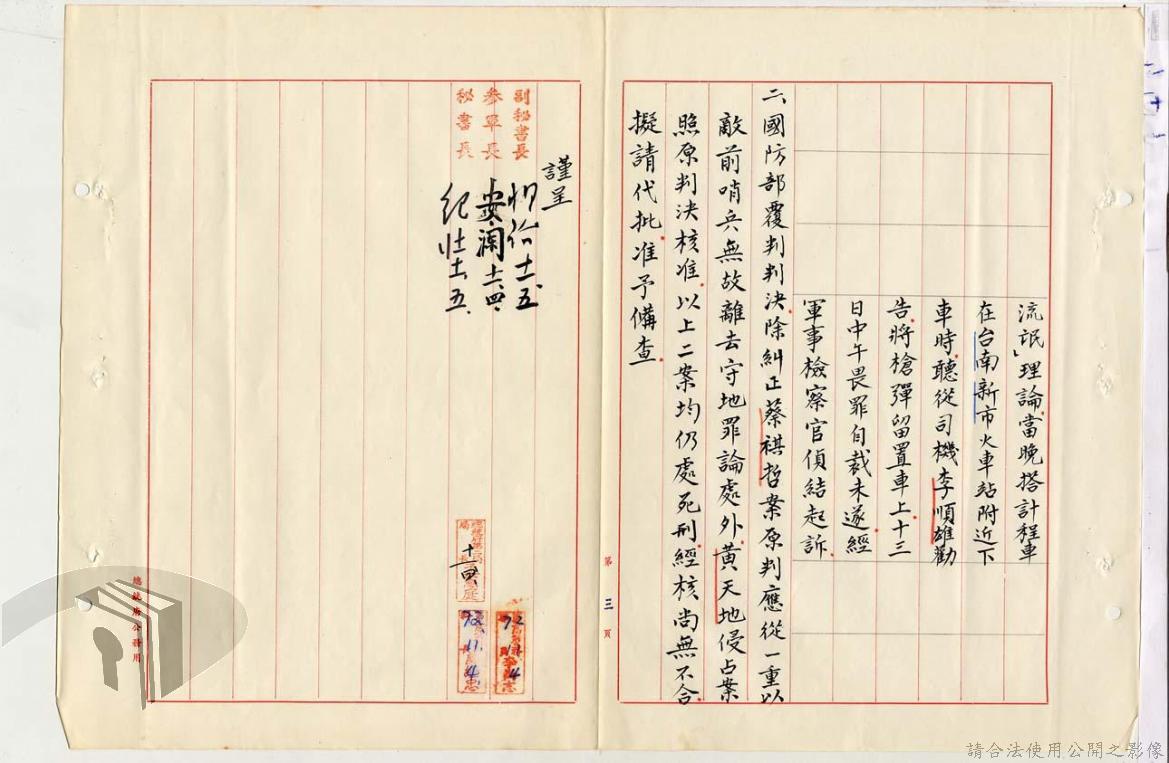 流氓」理論，當晚搭計程車
在台南新市火車站附近下
車時，聽從司機李順雄勸
告，將槍彈留置車上，十三
日中午畏罪自裁未遂，經
軍事檢察官偵結起訴。
二、國防部覆判判決，除糾正蔡祺哲案原判應從一重以
敵前哨兵無故離去守地罪論處外，黃天地侵占案
照原判決核准。以上二案均仍處死刑，經核尚無不合，
擬請代批准予備查。
第三頁
謹呈
副秘書長
參軍長
秘書長
十一、五
安瀾 十一、四、
十一、五、
72.11.4
72.11.4
總統府公務用
請合法使用公開之影像